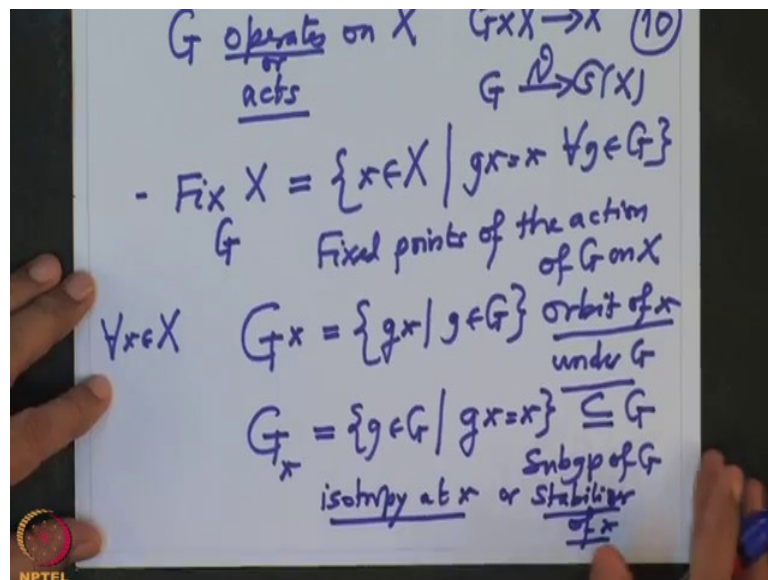 G operates on X    G×X→X    (10)
or
acts    G →ϑ S(X)
- Fix_G X = {x∈X | gx=x ∀g∈G}
Fixed points of the action
of G on X
∀x∈X    Gx = {gx | g∈G} orbit of x
under G
G_x = {g∈G | gx=x} ⊆ G
Subgp of G
isotropy at x or Stabilizer
of x
NPTEL